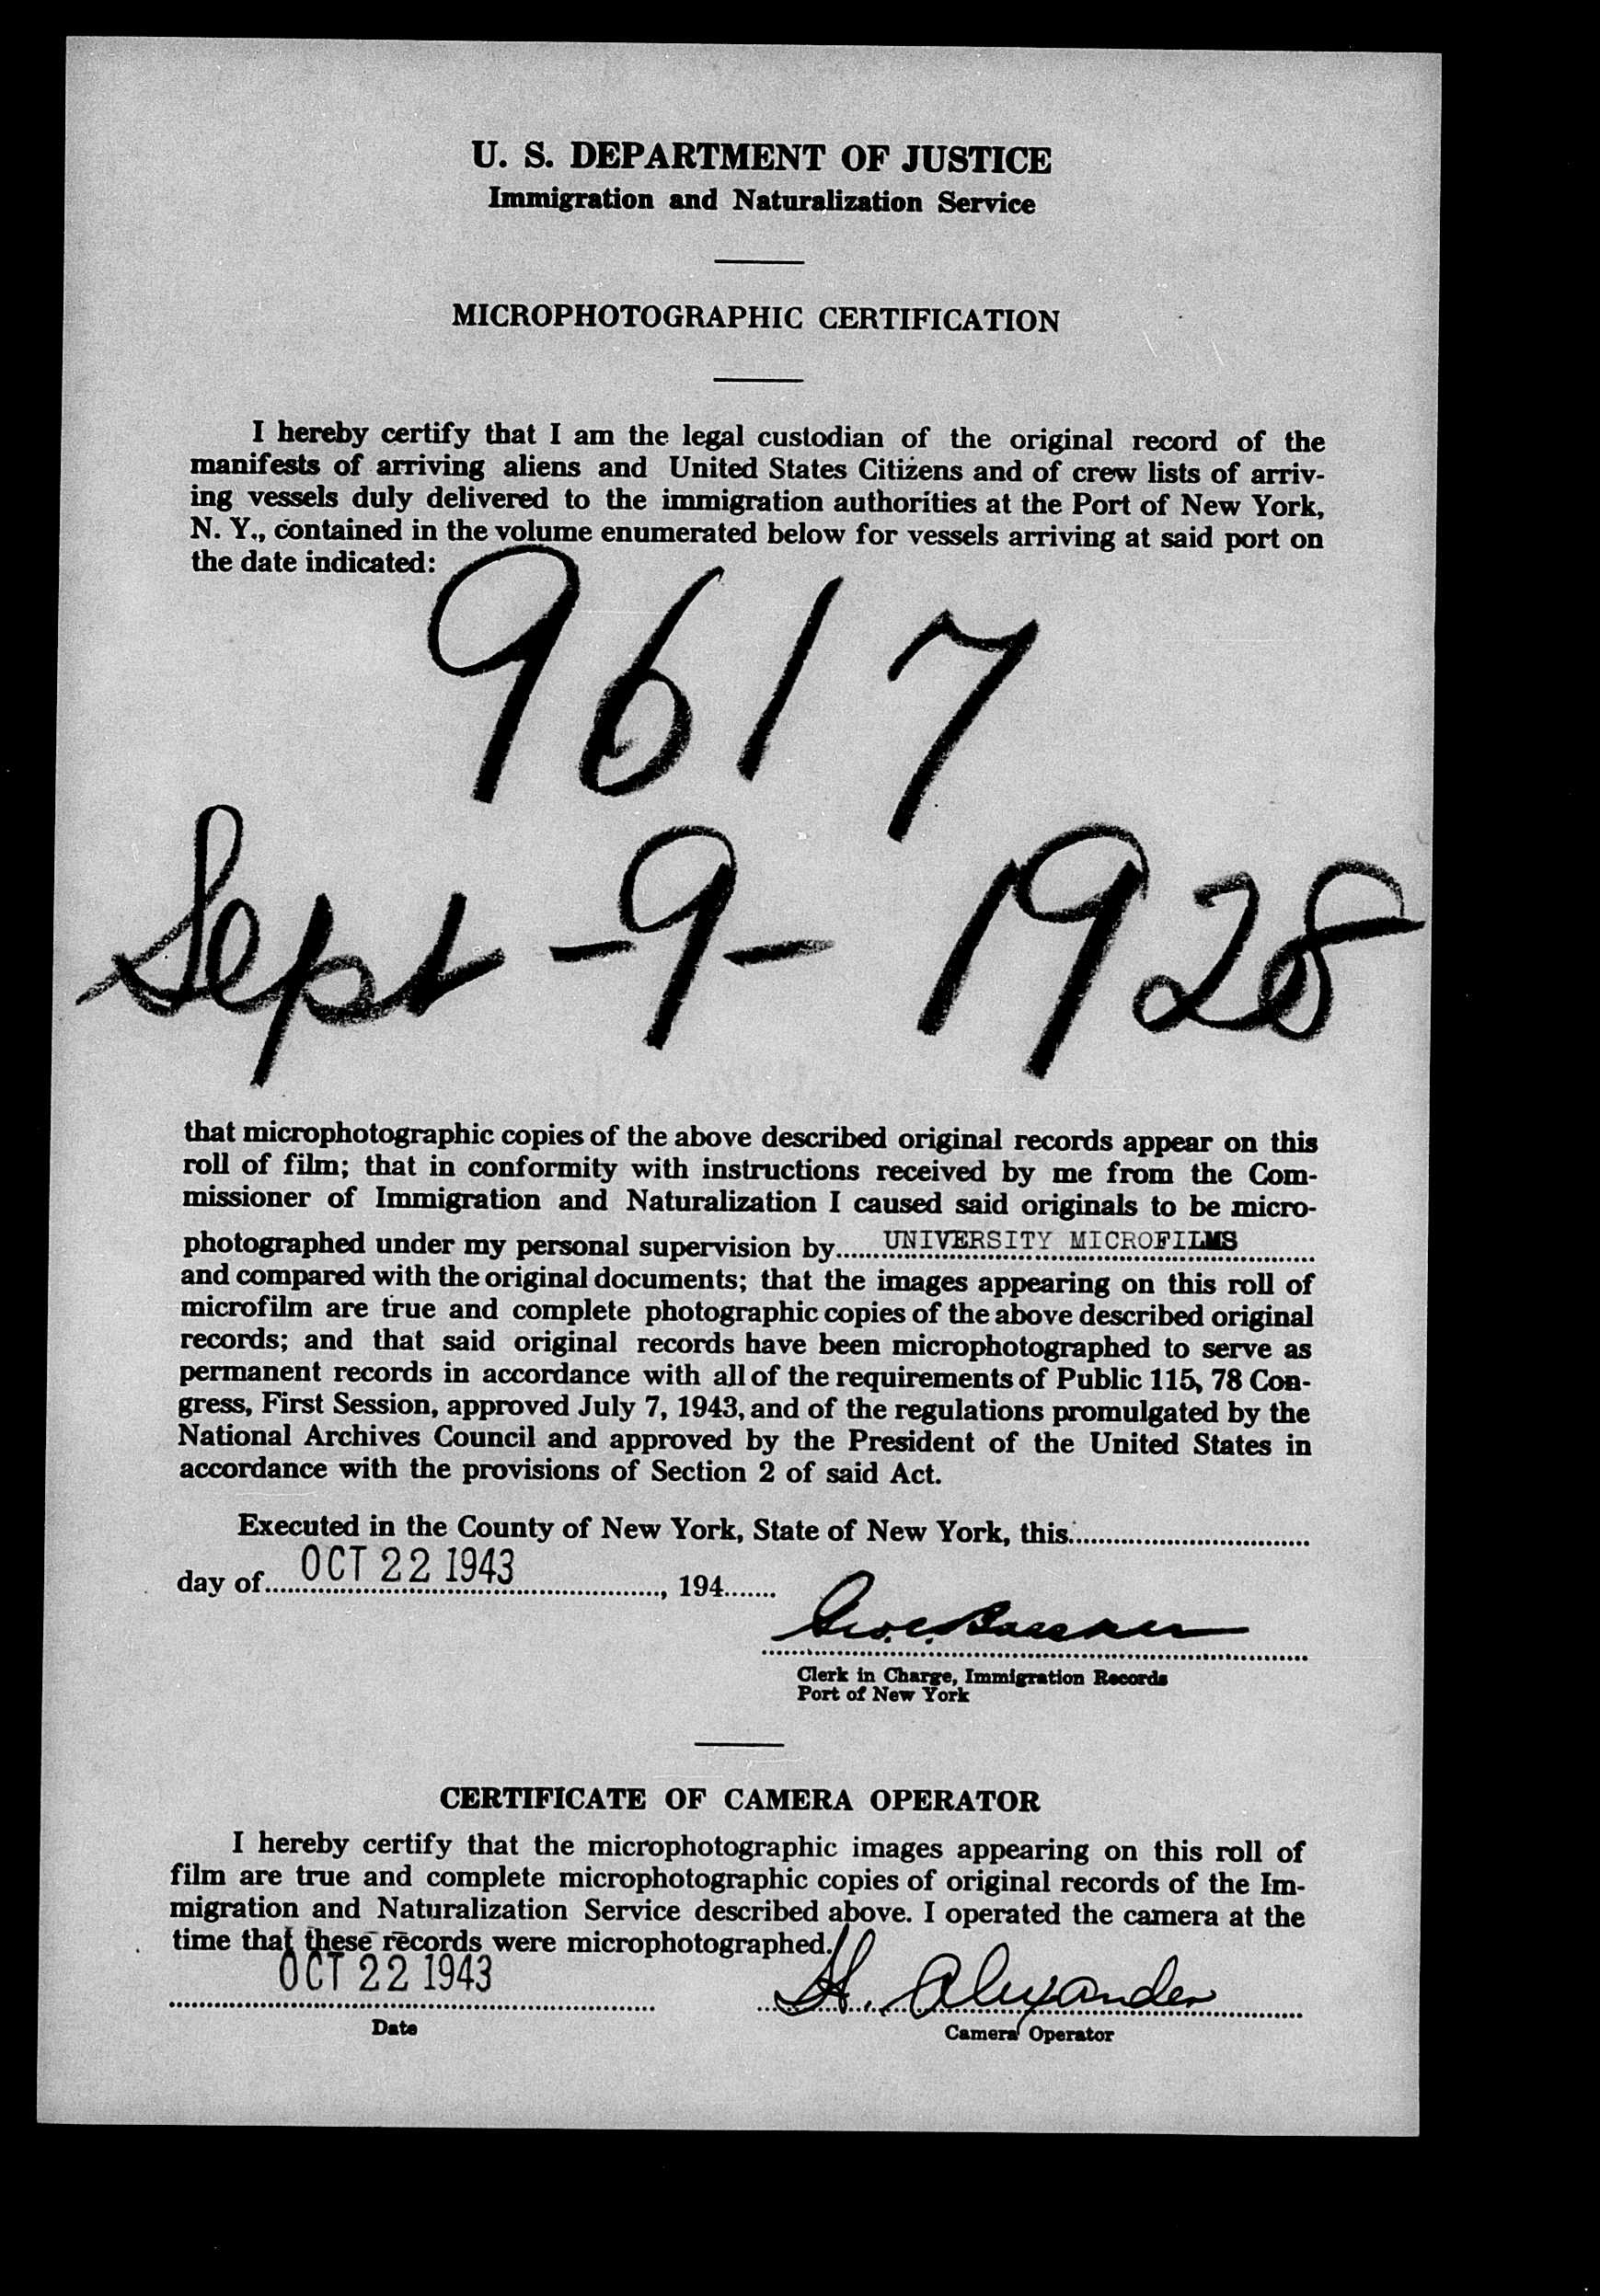 U. S. DEPARTMENT OF JUSTICE
Immigration and Naturalization Service
MICROPHOTOGRAPHIC CERTIFICATION
I hereby certify that I am the legal custodian of the original record of the
manifests of arriving aliens and United States Citizens and of crew lists of arriv-
ing vessels duly delivered to the immigration authorities at the Port of New York,
N. Y., contained in the volume enumerated below for vessels arriving at said port on
the date indicated:
9617
Sept -9- 1928
that microphotographic copies of the above described original records appear on this
roll of film; that in conformity with instructions received by me from the Com-
missioner of Immigration and Naturalization I caused said originals to be micro-
photographed under my personal supervision by UNIVERSITY MICROFILMS
and compared with the original documents; that the images appearing on this roll of
microfilm are true and complete photographic copies of the above described original
records; and that said original records have been microphotographed to serve as
permanent records in accordance with all of the requirements of Public 115, 78 Con-
gress, First Session, approved July 7, 1943, and of the regulations promulgated by the
National Archives Council and approved by the President of the United States in
accordance with the provisions of Section 2 of said Act.
Executed in the County of New York, State of New York, this
day of OCT 22 1943, 194
Clerk in Charge, Immigration Records
Port of New York
CERTIFICATE OF CAMERA OPERATOR
I hereby certify that the microphotographic images appearing on this roll of
film are true and complete microphotographic copies of original records of the Im-
migration and Naturalization Service described above. I operated the camera at the
time that these records were microphotographed.
OCT 22 1943 H. Alexander
Date Camera Operator